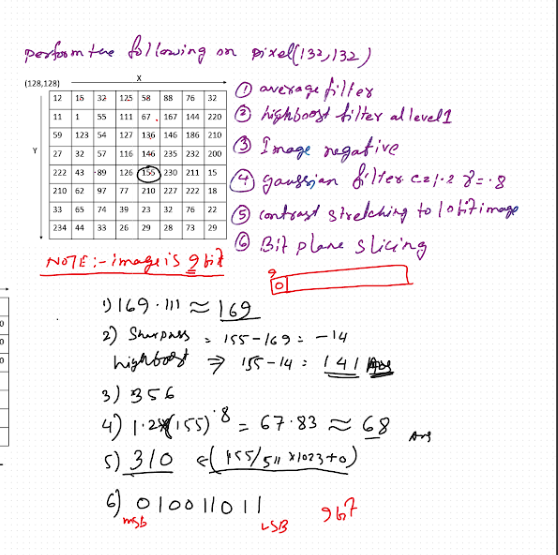 perform the following on pixel(132,132)
(128,128) X
Y
12 16 32 125 58 88 76 32
11 1 55 111 67 167 144 220
59 123 54 127 136 146 186 210
27 32 57 116 146 235 232 200
222 43 89 126 155 230 211 15
210 62 97 77 210 227 222 18
33 65 74 39 23 32 76 22
234 44 33 26 29 28 73 29
① average filter
② highboost filter at level 1
③ Image negative
④ gaussian filter c=1.2 γ=.8
⑤ contrast stretching to 10 bit image
⑥ Bit plane slicing
NOTE:- image is 9 bit
9
0
1) 169.111 ≈ 169
2) Sharpness = 155-169 = -14
highboost ⇒ 155-14 = 141 Ans
3) 356
4) 1.2*(155)^.8 = 67.83 ≈ 68 Ans
5) 310 ←(155/511 × 1023+0)
6) 010011011
msb LSB 9bit
0
0
0